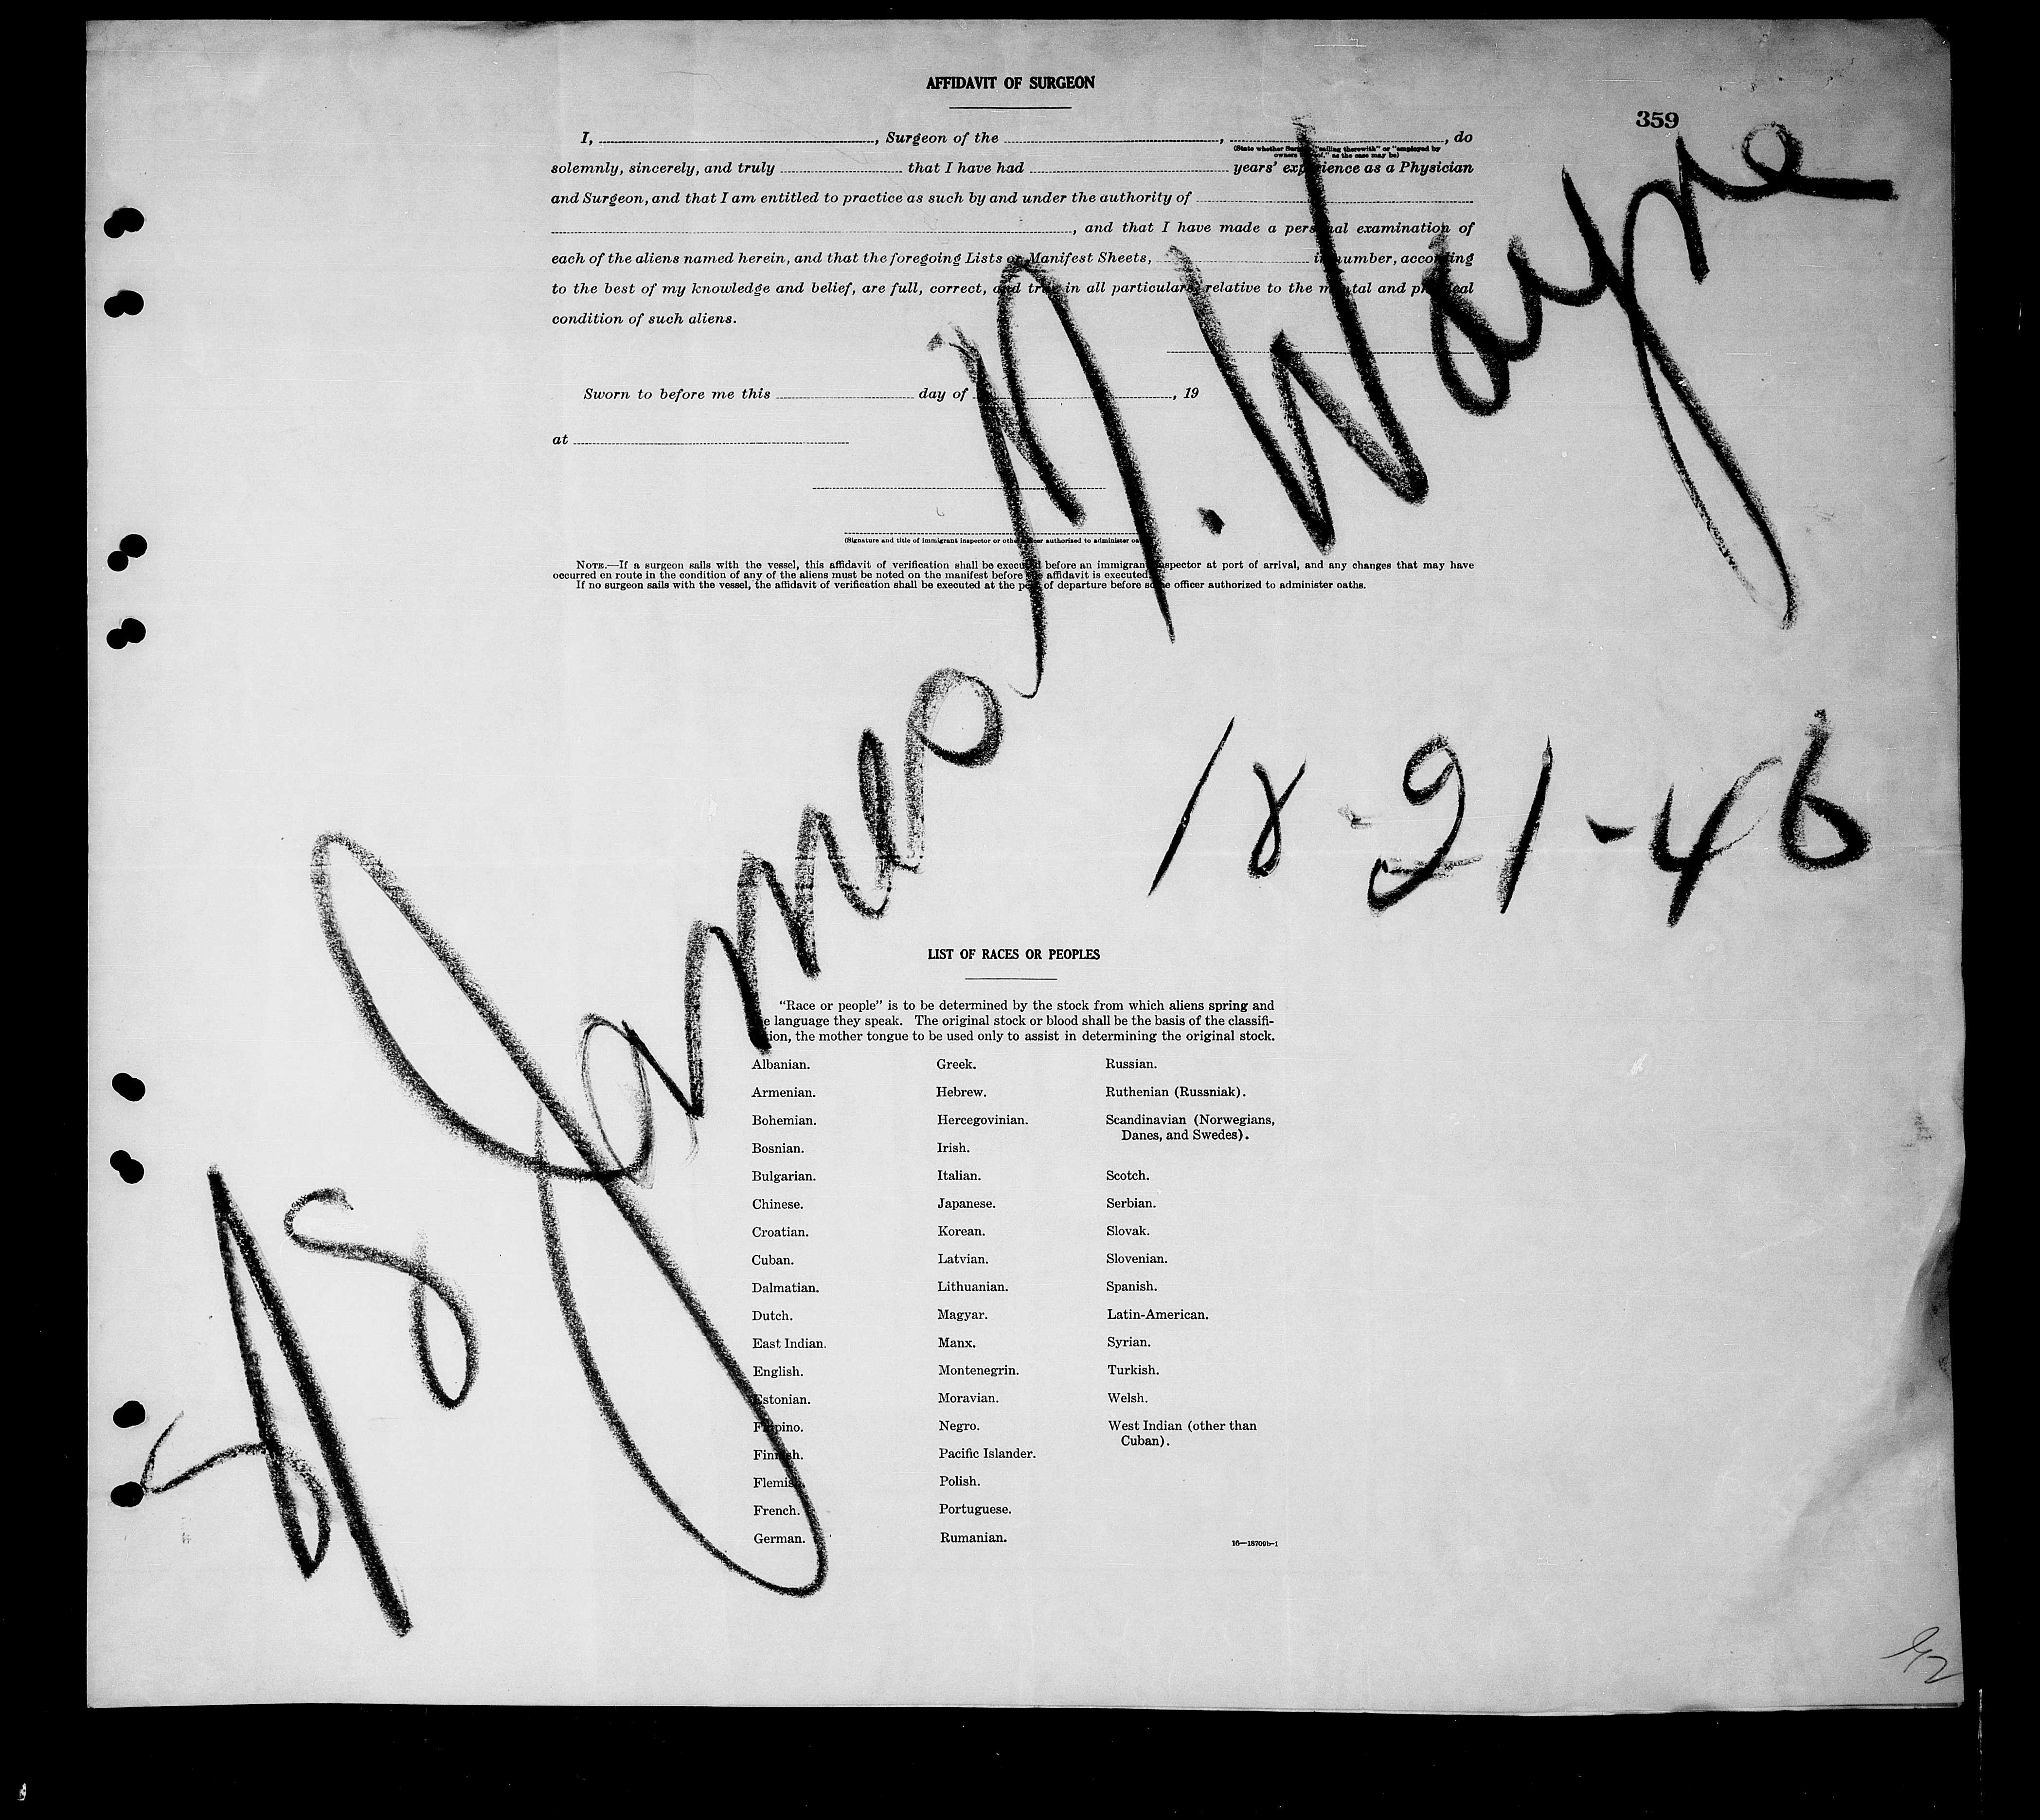 AFFIDAVIT OF SURGEON
359
I, , Surgeon of the , , do
(State whether Surgeon "sailing therewith" or "employed by
owners thereof," as the case may be)
solemnly, sincerely, and truly that I have had years' experience as a Physician
and Surgeon, and that I am entitled to practice as such by and under the authority of
, and that I have made a personal examination of
each of the aliens named herein, and that the foregoing Lists or Manifest Sheets, in number, according
to the best of my knowledge and belief, are full, correct, and true in all particulars relative to the mental and physical
condition of such aliens.
Sworn to before me this day of , 19
at
(Signature and title of immigrant inspector or other officer authorized to administer oaths)
NOTE.—If a surgeon sails with the vessel, this affidavit of verification shall be executed before an immigrant inspector at port of arrival, and any changes that may have
occurred en route in the condition of any of the aliens must be noted on the manifest before the affidavit is executed.
If no surgeon sails with the vessel, the affidavit of verification shall be executed at the port of departure before some officer authorized to administer oaths.
SS James M. Wayne
18-21-46
LIST OF RACES OR PEOPLES
"Race or people" is to be determined by the stock from which aliens spring and
the language they speak. The original stock or blood shall be the basis of the classifi-
cation, the mother tongue to be used only to assist in determining the original stock.
Albanian.
Armenian.
Bohemian.
Bosnian.
Bulgarian.
Chinese.
Croatian.
Cuban.
Dalmatian.
Dutch.
East Indian.
English.
Estonian.
Filipino.
Finnish.
Flemish.
French.
German.
Greek.
Hebrew.
Hercegovinian.
Irish.
Italian.
Japanese.
Korean.
Latvian.
Lithuanian.
Magyar.
Manx.
Montenegrin.
Moravian.
Negro.
Pacific Islander.
Polish.
Portuguese.
Rumanian.
Russian.
Ruthenian (Russniak).
Scandinavian (Norwegians,
Danes, and Swedes).
Scotch.
Serbian.
Slovak.
Slovenian.
Spanish.
Latin-American.
Syrian.
Turkish.
Welsh.
West Indian (other than
Cuban).
16—18709b-1